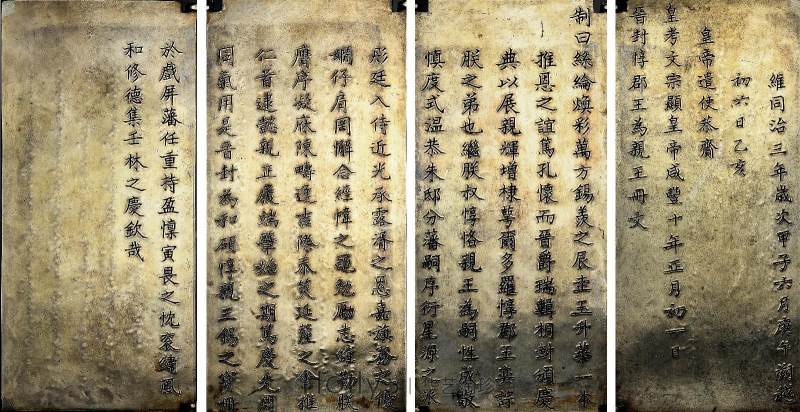 維同治三年歲次甲子六月庚午朔越
初六日乙亥
皇帝遣使恭齎
皇考文宗顯皇帝咸豐十年正月初一日
晉封惇郡王為親王冊文
制曰絲綸煥彩萬方錫羨之辰玉升華一本
推恩之誼篤孔懷而晉爵瑞輯桐封頒慶
典以展親輝增棣萼爾多羅惇郡王奕誴
朕之弟也繼朕叔惇恪親王為嗣性成敬
慎度式溫恭朱邸分藩嗣序衍星源之派
彤廷入侍近光承露湛之恩嘉旗務之修
嫺仔肩罔懈合經幃之黽勉勵志維勤朕
膺序凝庥陳疇逢吉泰延釐之會推
仁首逮懿親正履端肇始之期篤慶先周
同氣用是晉封為和碩惇親王錫之寶冊
於戲屏藩任重持盈懍寅畏之忱繡風
和修德集壬林之慶欽哉